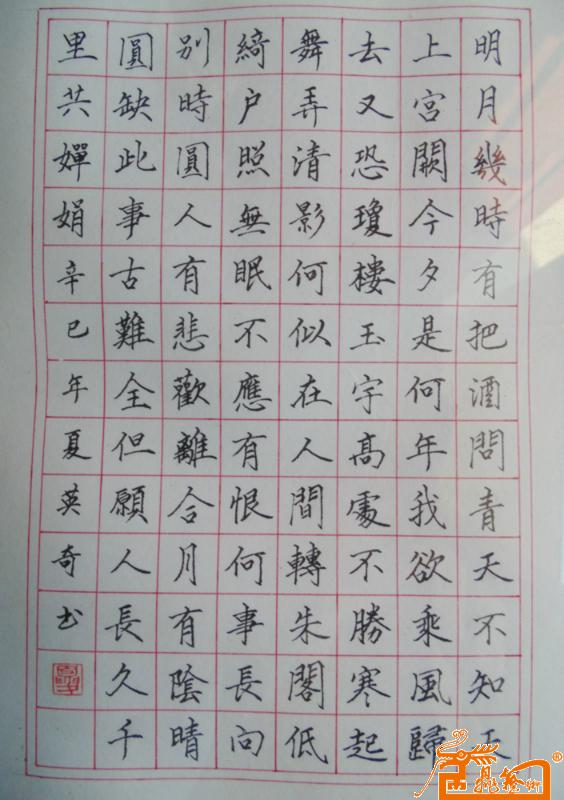 明月幾時有把酒問青天不知天
上宮闕今夕是何年我欲乘風歸
去又恐瓊樓玉宇高處不勝寒起
舞弄清影何似在人間轉朱閣低
綺户照無眠不應有恨何事長向
別時圓人有悲歡離合月有陰晴
圓缺此事古難全但願人長久千
里共嬋娟辛巳年夏英奇书